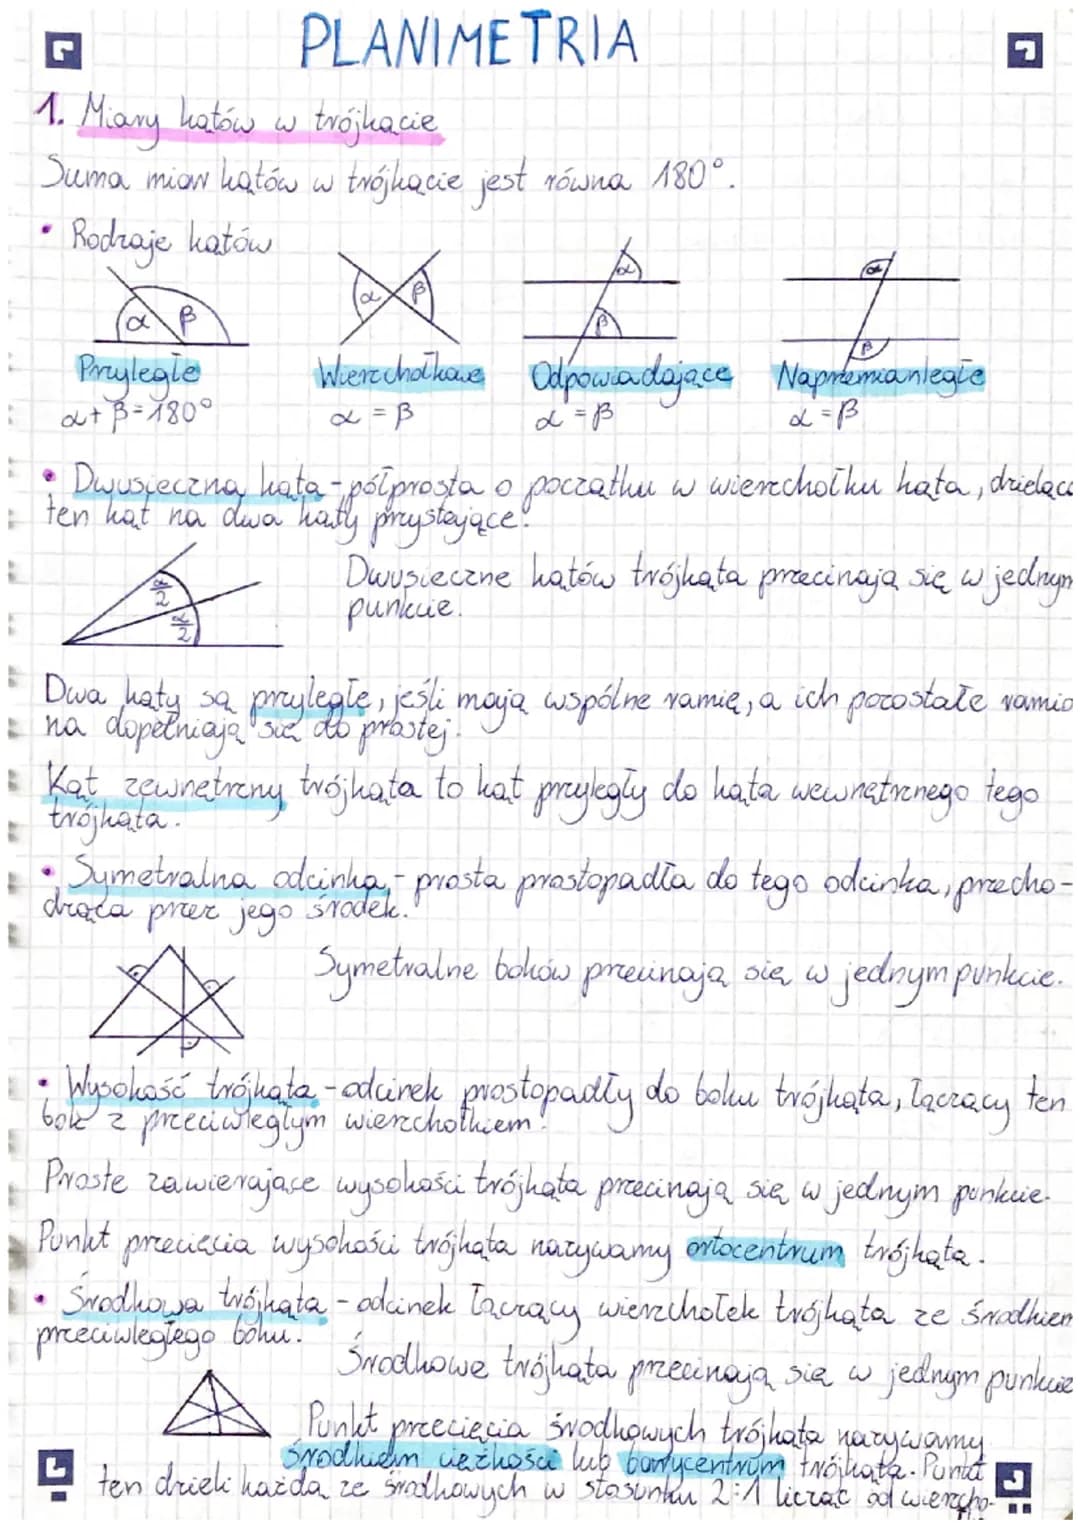 PLANIMETRIA
1. Miary kątów w trójkącie
Suma miar kątów w trójkącie jest równa 180°.
• Rodzaje kątów
α β
α β
α
β
α
β
Przyległe Wierzchołkowe Odpowiadające Naprzemianległe
α + β = 180° α = β α = β α = β
• Dwusieczna kąta - półprosta o początku w wierzchołku kąta, dzieląca
ten kąt na dwa kąty przystające.
α/2
α/2
Dwusieczne kątów trójkąta przecinają się w jednym
punkcie.
Dwa kąty są przyległe, jeśli mają wspólne ramię, a ich pozostałe ramio
na dopełniają się do prostej.
Kąt zewnętrzny trójkąta to kąt przyległy do kąta wewnętrznego tego
trójkąta.
• Symetralna odcinka - prosta prostopadła do tego odcinka, przecho-
dząca przez jego środek.
Symetralne boków przecinają się w jednym punkcie.
• Wysokość trójkąta - odcinek prostopadły do boku trójkąta, łączący ten
bok z przeciwległym wierzchołkiem.
Proste zawierające wysokości trójkąta przecinają się w jednym punkcie.
Punkt przecięcia wysokości trójkąta nazywamy ortocentrum trójkąta.
• Środkowa trójkąta - odcinek łączący wierzchołek trójkąta ze środkiem
przeciwległego boku.
Środkowe trójkąta przecinają się w jednym punkcie
Punkt przecięcia środkowych trójkąta nazywamy
środkiem ciężkości lub barycentrum trójkąta. Punkt
ten dzieli każdą ze środkowych w stosunku 2:1 licząc od wierzcho-